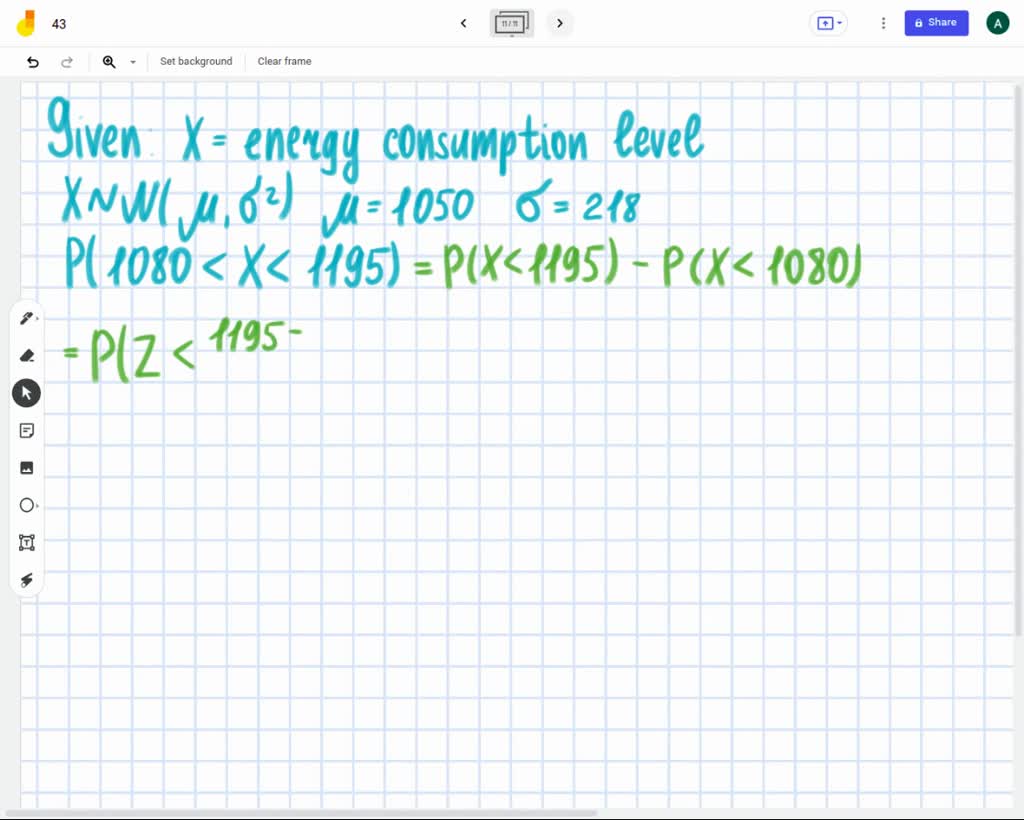 43
11 / 11
Share
A
Set background
Clear frame
Given: X = energy consumption level
X ~ N(μ, σ²) μ = 1050 σ = 218
P(1080 < X < 1195) = P(X < 1195) - P(X < 1080)
= P(Z < 1195 -